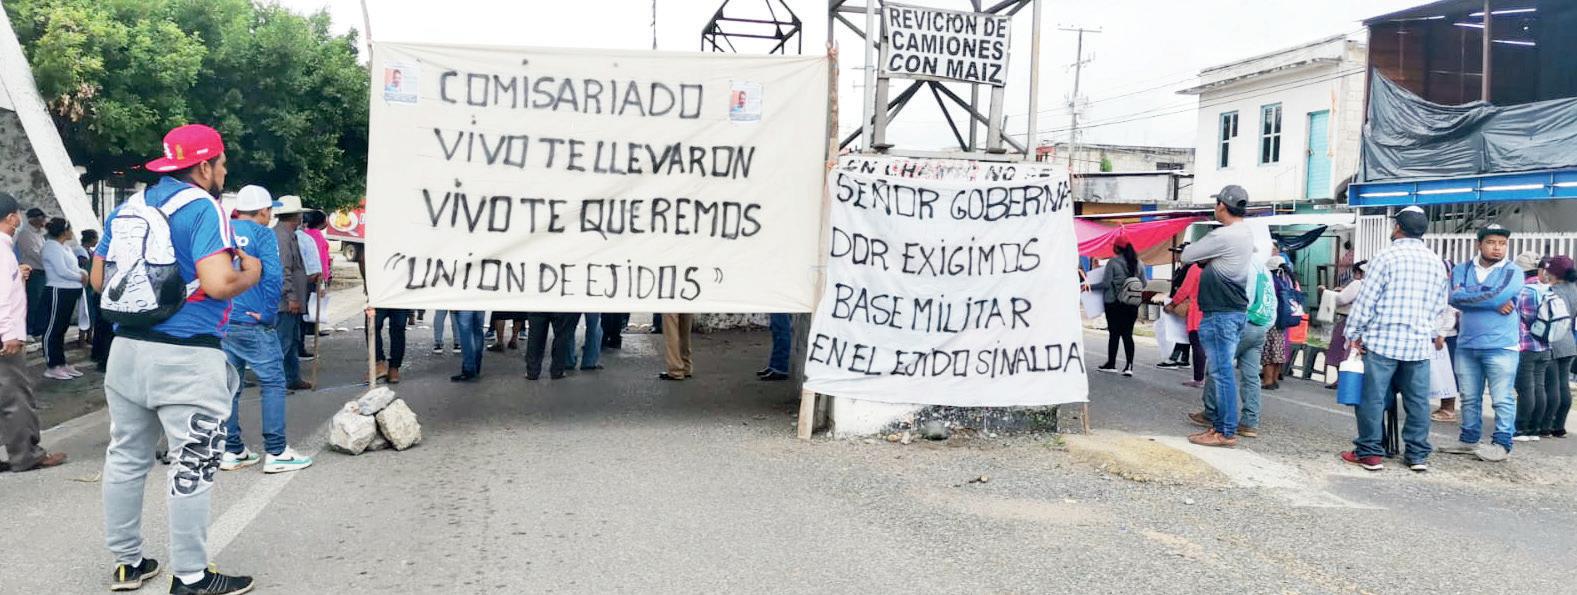 REVICION DE
CAMIONES
CON MAIZ
COMISARIADO
VIVO TE LLEVARON
VIVO TE QUEREMOS
"UNION DE EJIDOS"
SEÑOR GOBERNA
DOR EXIGIMOS
BASE MILITAR
EN EL EJIDO SINALOA